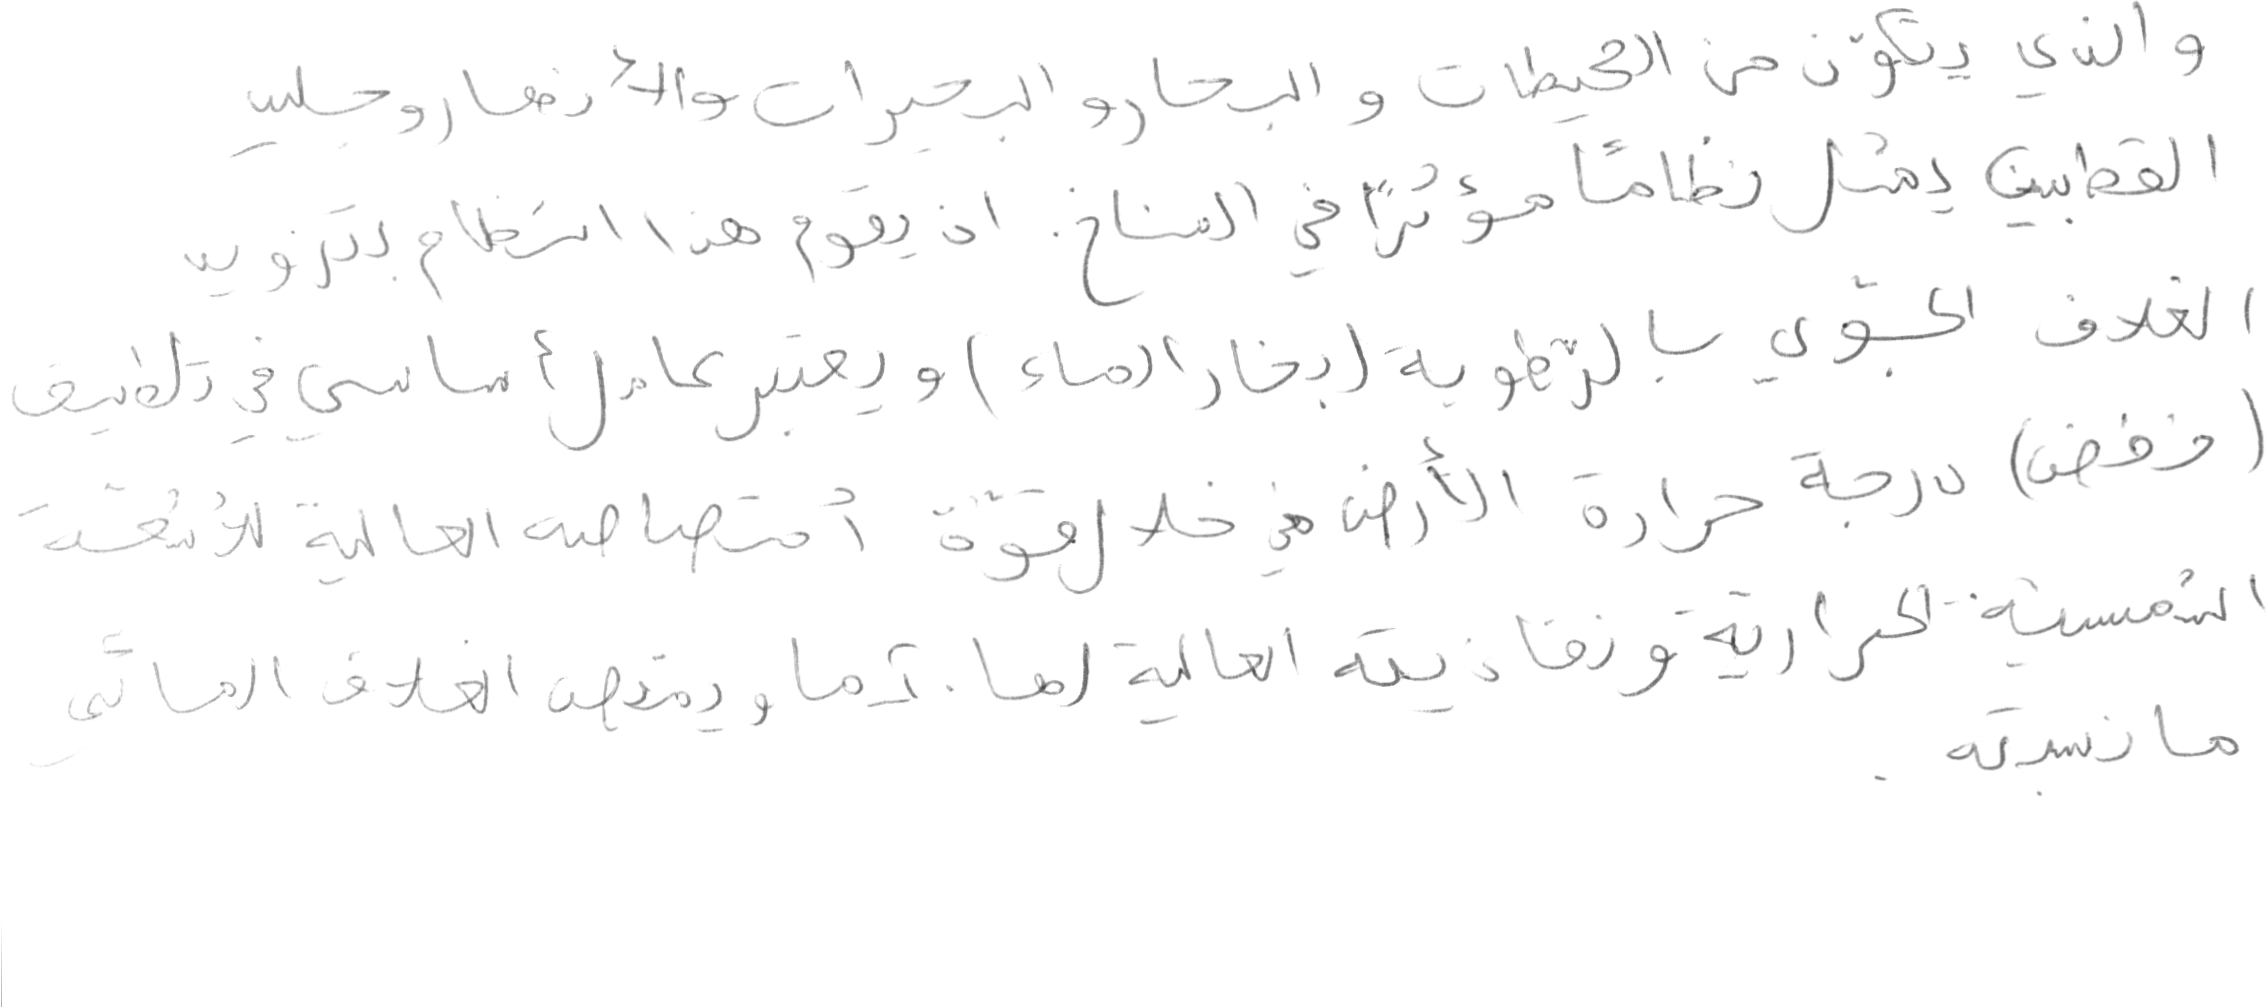 والذي يتكوّن من المحيطات والبحار والبحيرات والأنهار وجليد
القطبين يمثل نظامًا مؤثرًا في المناخ. اذ يقوم هذا النظام بتزويد
الغلاف الجوّي بالرّطوبة (بخار الماء) ويعتبر عامل أساسي في تلطيف
(خفض) درجة حرارة الأرض من خلال قوّة أمتصاصه العالية للأشعّة
الشمسيّة الحراريّة ونفاذيته العالية لها. كما ويمتص الغلاف المائي
ما نسبته .